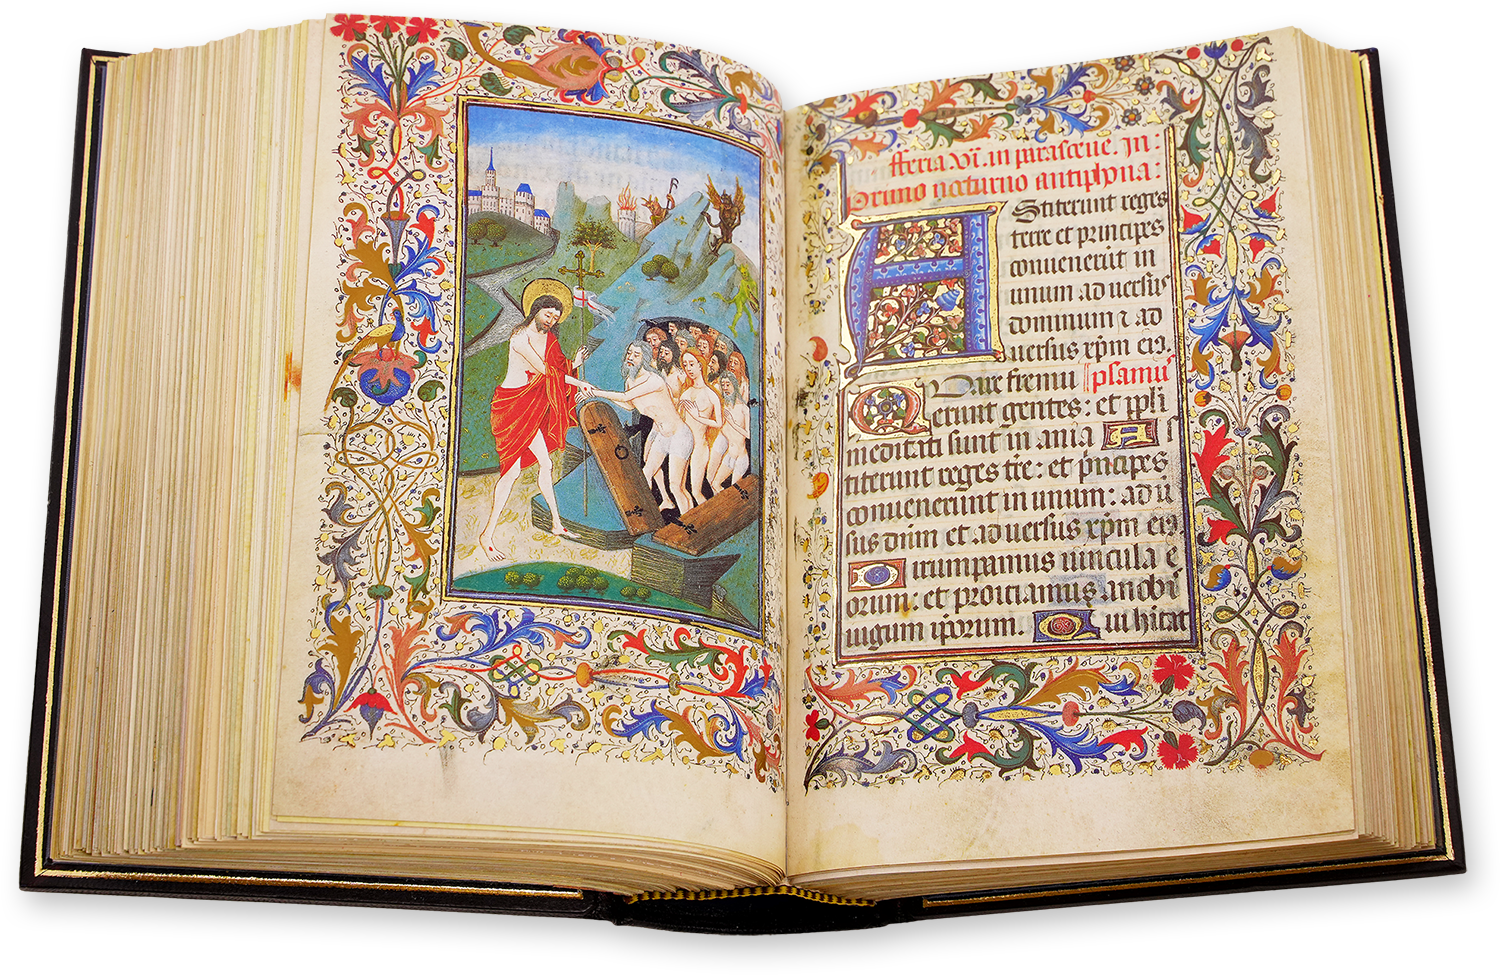 fferia vi. in parasceue. In
primo nocturno antiphona:
Astiterunt reges
terre et principes
conuenerūt in
unum aduersus
dominum ⁊ ad
uersus xp̄m eiꝰ.
Quare fremu psamꝰ
erunt gentes: et ppl̄i
meditati sunt in ania A s
titerunt reges tr̄e: et p̄ncipes
conuenerunt in unum: adū
sus dn̄m et aduersus xp̄m eiꝰ
Dirumpamus uincula e
orum: et proiciamus anobi
iugum ip̄orum. Qui hitat